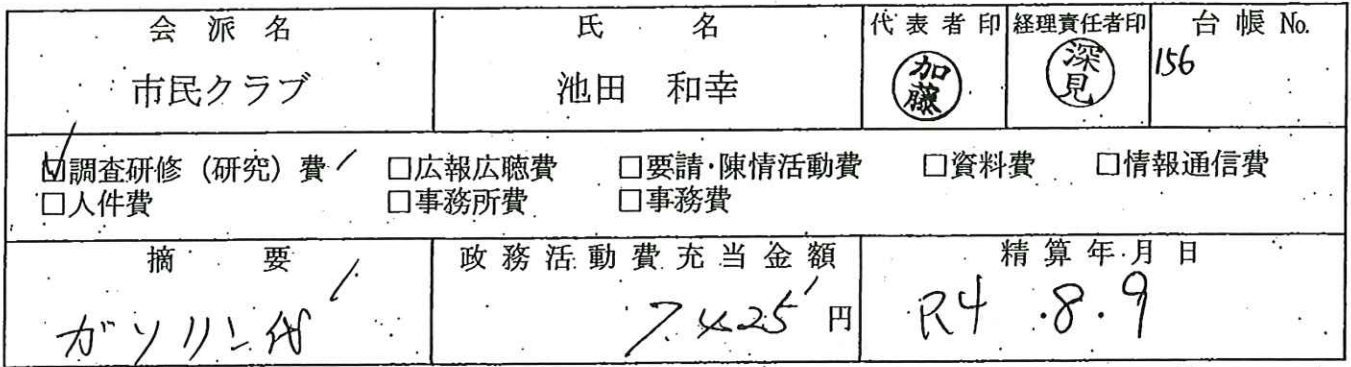 会派名 氏名 代表者印 経理責任者印 台帳 No.
市民クラブ 池田 和幸 加藤 深見 156
☑調査研修（研究）費 □広報広聴費 □要請・陳情活動費 □資料費 □情報通信費
□人件費 □事務所費 □事務費
摘要 政務活動費充当金額 精算年月日
ガソリン代 7,425円 R4.8.9